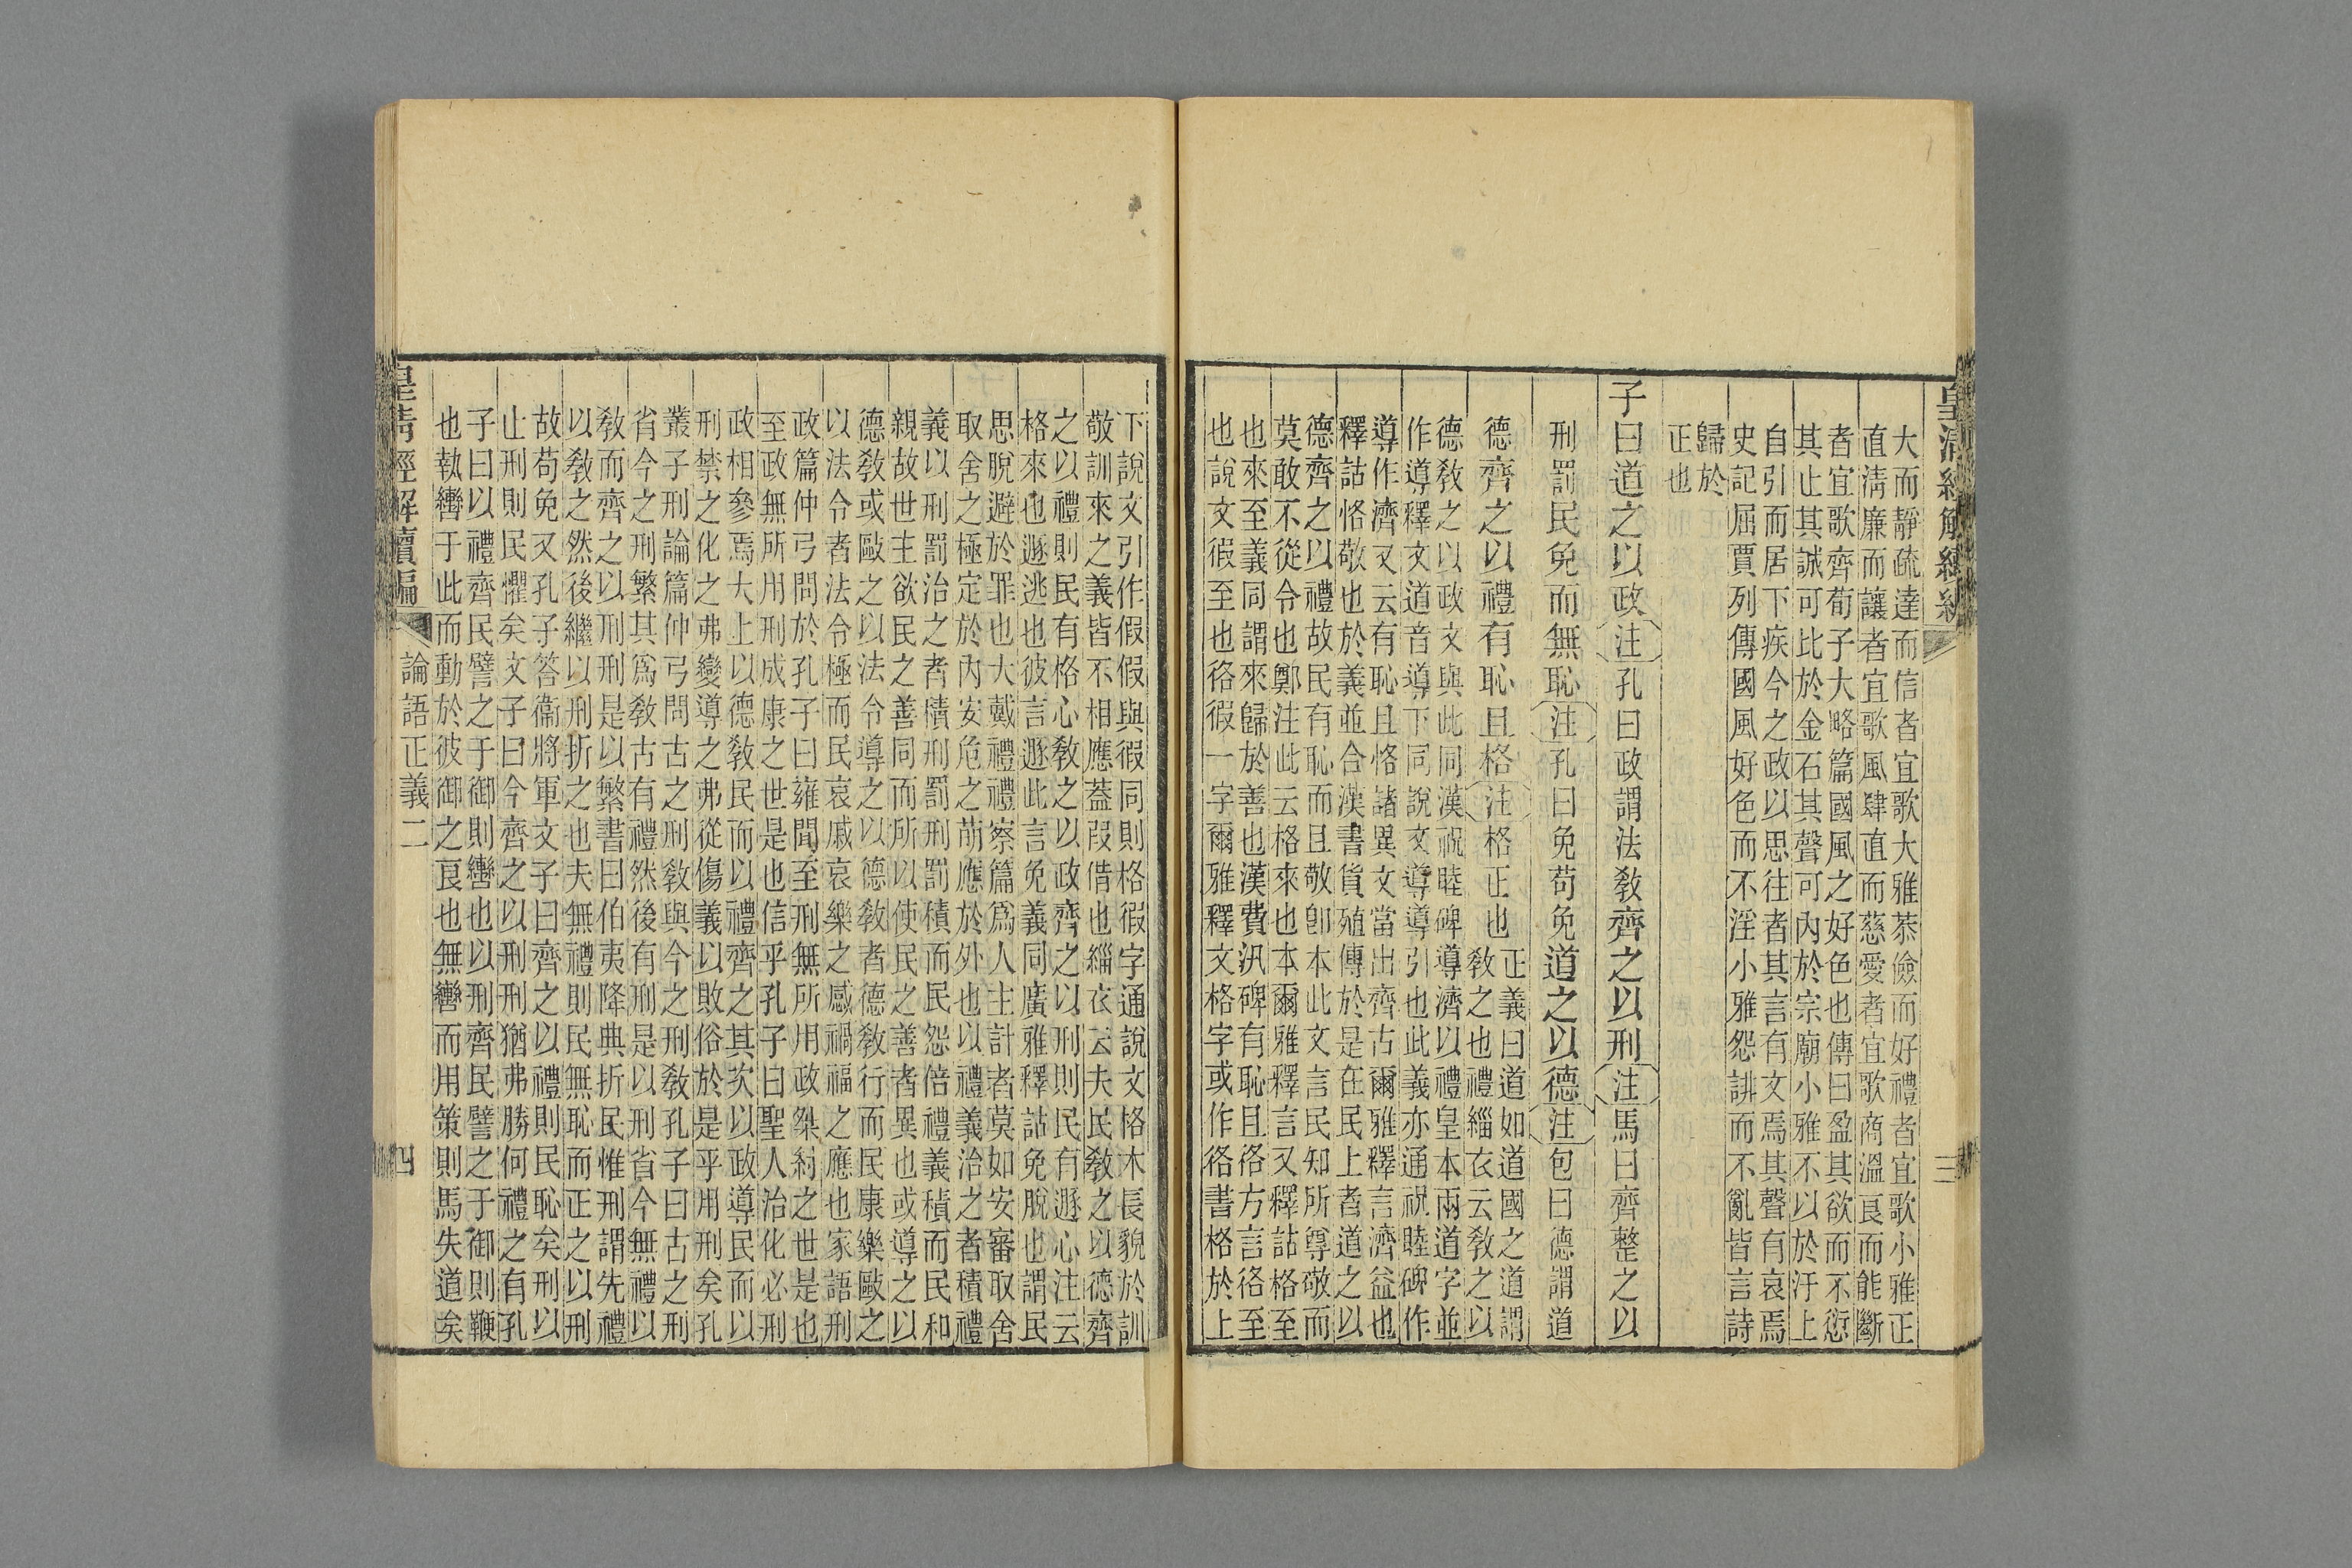 皇淸經解續編
三
大而靜疏達而信者宜歌大雅恭儉而好禮者宜歌小雅正
直淸廉而讓者宜歌風肆直而慈愛者宜歌商溫良而能斷
者宜歌齊荀子大略篇國風之好色也傳曰盈其欲而不愆
其止其誠可比於金石其聲可內於宗廟小雅不以於汙上
自引而居下疾今之政以思往者其言有文焉其聲有哀焉
史記屈賈列傳國風好色而不淫小雅怨誹而不亂皆言詩
歸於
正也
子曰道之以政注孔曰政謂法敎齊之以刑注馬曰齊整之以
刑罰民免而無恥注孔曰免苟免道之以德注包曰德謂道
德齊之以禮有恥且格注格正也
正義曰道如道國之道謂
敎之也禮緇衣云敎之以
德敎之以政文與此同漢祝睦碑導濟以禮皇本兩道字並
作導釋文道音導下同說文導導引也此義亦通祝睦碑作
導作濟又云有恥且恪諸異文當出齊古爾雅釋言濟益也
釋詁恪敬也於義並合漢書貨殖傳於是在民上者道之以
德齊之以禮故民有恥而且敬卽本此文言民知所尊敬而
莫敢不從令也鄭注此云格來也本爾雅釋言又釋詁格至
也來至義同謂來歸於善也漢費汎碑有恥且佫方言佫至
也說文徦至也佫徦一字爾雅釋文格字或作佫書格於上
下說文引作假假與徦同則格徦字通說文格木長貌於訓
敬訓來之義皆不相應葢叚借也緇衣云夫民敎之以德齊
之以禮則民有格心敎之以政齊之以刑則民有遯心注云
格來也遯逃也彼言遯此言免義同廣雅釋詁免脫也謂民
思脫避於罪也大戴禮禮察篇爲人主計者莫如安審取舍
取舍之極定於內安危之萌應於外也以禮義治之者積禮
義以刑罰治之者積刑罰刑罰積而民怨倍禮義積而民和
親故世主欲民之善同而所以使民之善者異也或導之以
德敎或歐之以法令導之以德敎者德敎行而民康樂歐之
以法令者法令極而民哀戚哀樂之感禍福之應也家語刑
政篇仲弓問於孔子曰雍聞至刑無所用政桀紂之世是也
至政無所用刑成康之世是也信乎孔子曰聖人治化必刑
政相參焉大上以德敎民而以禮齊之其次以政導民而以
刑禁之化之弗變導之弗從傷義以敗俗於是乎用刑矣孔
叢子刑論篇仲弓問古之刑敎與今之刑敎孔子曰古之刑
省今之刑繁其爲敎古有禮然後有刑是以刑省今無禮以
敎而齊之以刑刑是以繁書曰伯夷降典折民惟刑謂先禮
以敎之然後繼以刑折之也夫無禮則民無恥而正之以刑
故苟免又孔子答衞將軍文子曰齊之以禮則民恥矣刑以
止刑則民懼矣文子曰今齊之以刑刑猶弗勝何禮之有孔
子曰以禮齊民譬之于御則轡也以刑齊民譬之于御則鞭
也執轡于此而動於彼御之良也無轡而用策則馬失道矣
皇淸經解續編
論語正義二
四